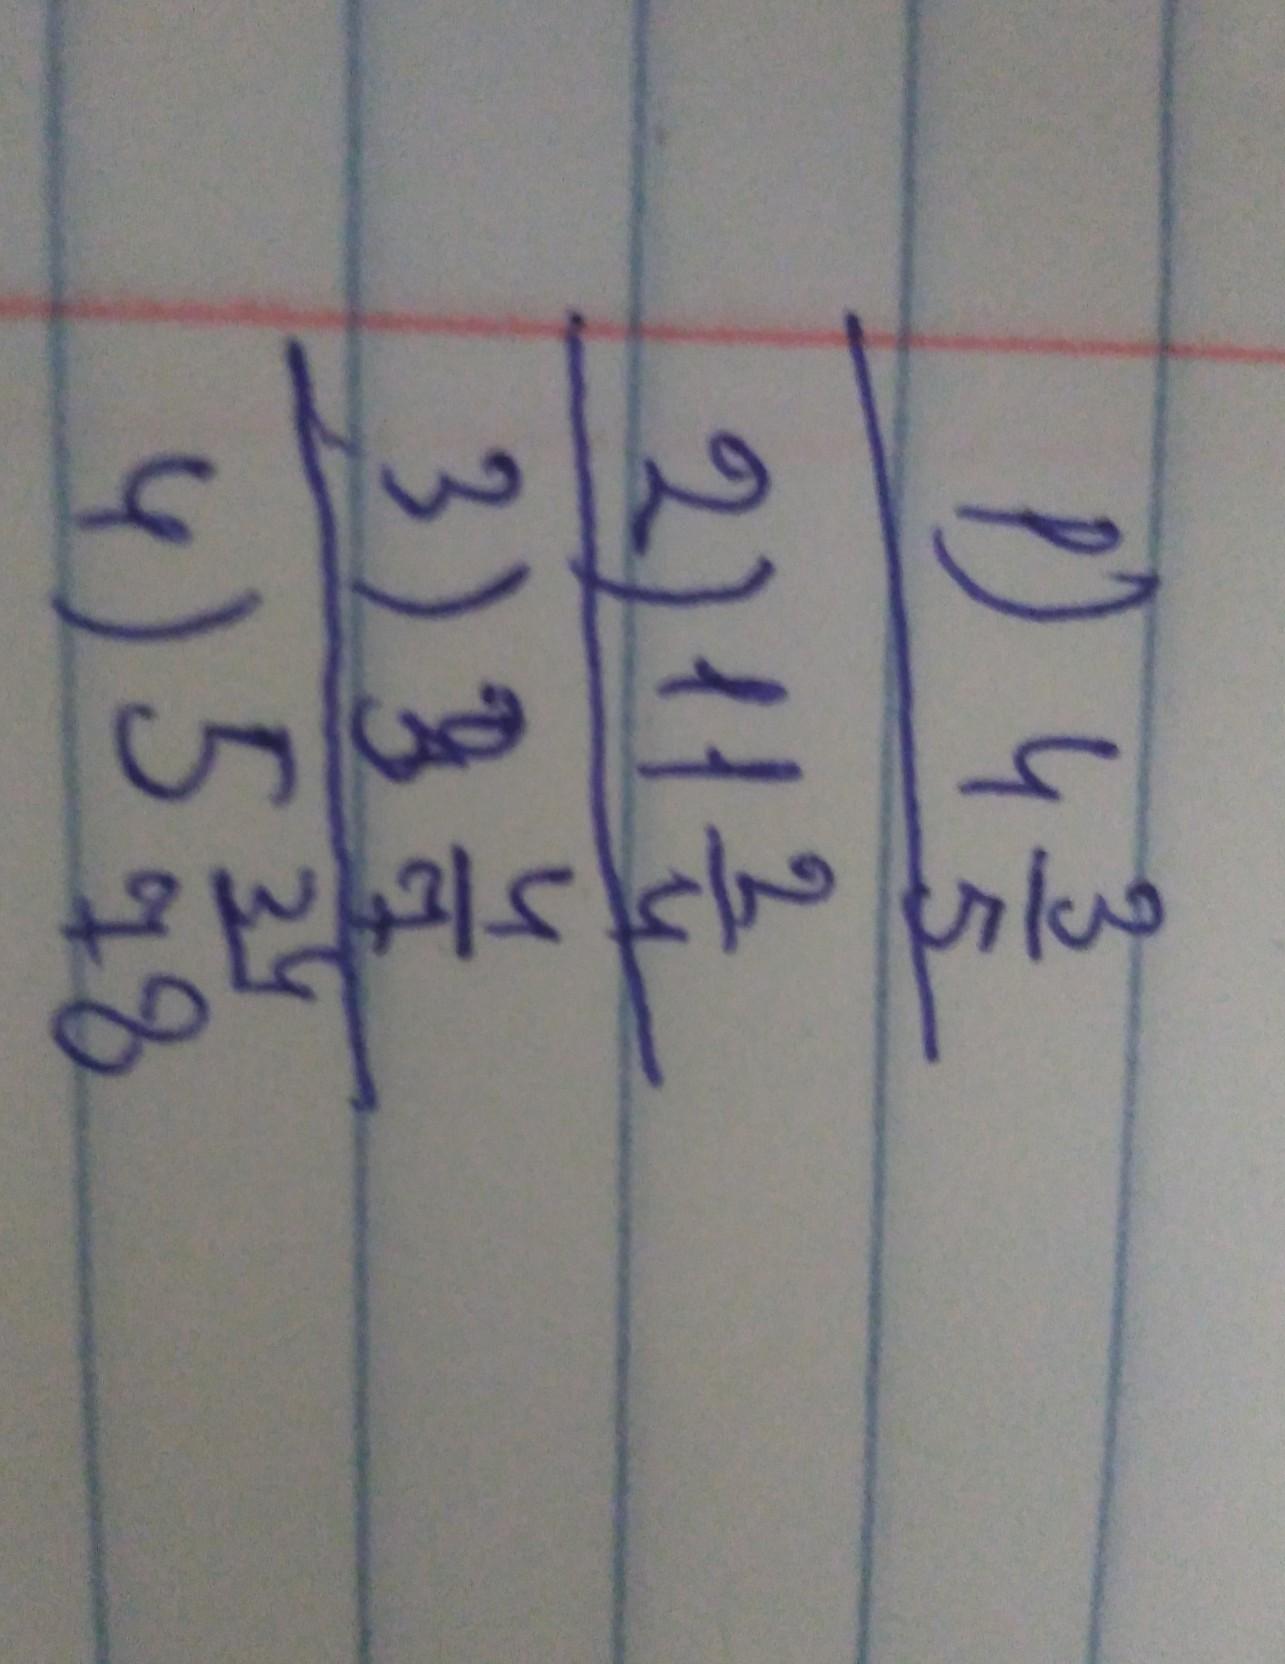 1) 4 3/5
2) 11 2/4
3) 3 4/7
4) 5 34/78